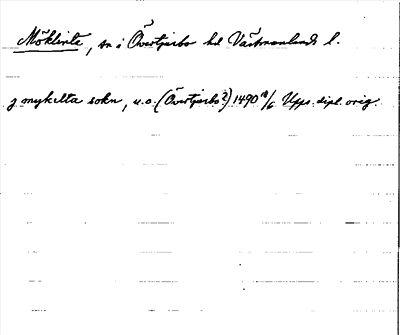 Möklinta, sn i Övertjurbo hd Västmanlands l.
j mykelta sokn, u.o. (Övertjurbo?) 1490 18/6 Upps. dipl. orig.